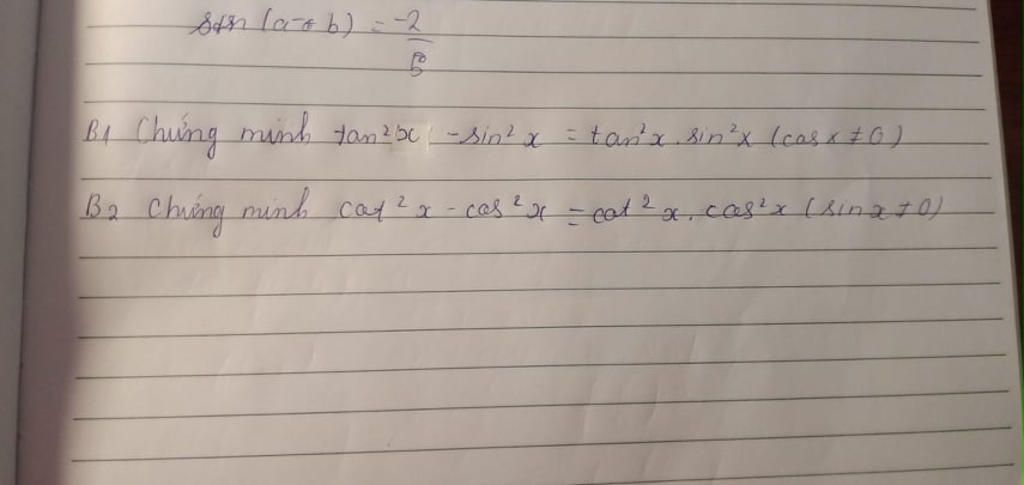 sin (a+b) = -2/5
B1 Chứng minh tan²x - sin²x = tan²x . sin²x (cos x ≠ 0)
B2 Chứng minh cot²x - cos²x = cot²x . cos²x (sin x ≠ 0)